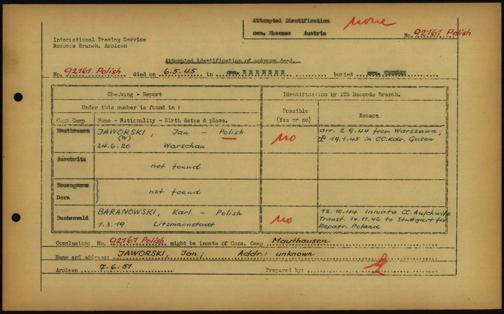 Attempted Identification
none
Austria
No. 92161 Polish
International Tracing Service
Records Branch, Arolsen
Attempted identification of unknown dead.
No. 92161 Polish died on 6.5.45 in cem. EBENSEE buried
Checking - Report
Identification by ITS Records Branch.
Under this number is found in:
Possible
(Yes or no)
Reason
Conc. Camp
Name - Nationality - Birth dates & place.
Mauthausen
JAWORSKI, Jan - Polish
(W)
24.6.20 Warschau
no
arr. 2.9.44 from Warszawa,
19.1.45 in CC.Kdr. Gusen
Auschwitz
not found
Dora
not found
Buchenwald
BARANOWSKI, Karl - Polish
1.3.19 Litzmannstadt
no
inmate CC. Auschwitz
Transf. to Stuttgart for
Repatr. Poland
Conclusion: No. 92161 Polish might be inmate of Conc. Camp Mauthausen
Name and address: JAWORSKI, Jan; Addr: unknown
Arolsen 7.6.51 Prepared by: